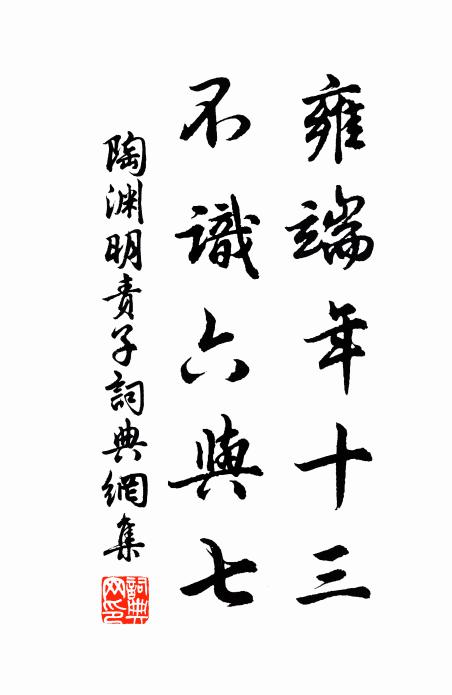 雍端年十三
不識六與七
陶渊明责子詞典網集
詞典网印